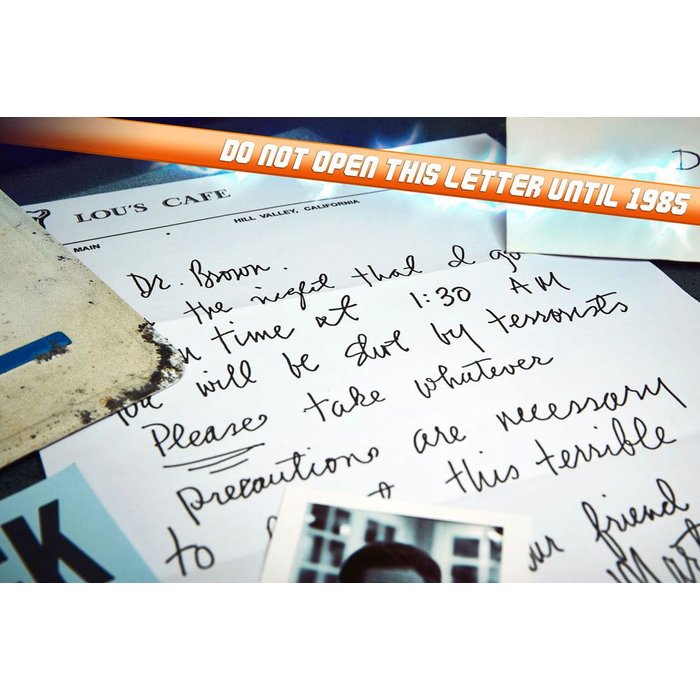 DO NOT OPEN THIS LETTER UNTIL 1985
D
LOU'S CAFE
HILL VALLEY, CALIFORNIA
MAIN
Dr. Brown.
the night that I go
time at 1:30 AM
You will be shot by terrorists
Please take whatever
precautions are necessary
to this terrible
friend